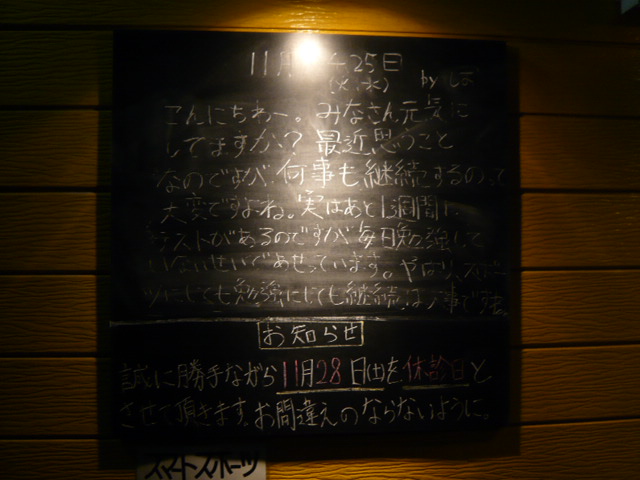 11月 25日
(火、水) by しほ
こんにちわー。みなさん元気に
してますか?最近思うこと
なのですが、何事も継続するのって
大変ですよね。実はあと1週間に
テストがあるのですが毎日勉強して
いないせいであせっています。やはり、スポー
ツにしても勉強にしても継続は大事ですね
お知らせ
誠に勝手ながら11月28日(土)を休齢日と
させて頂きます。お間違えのならないように。
スマートスポーツ